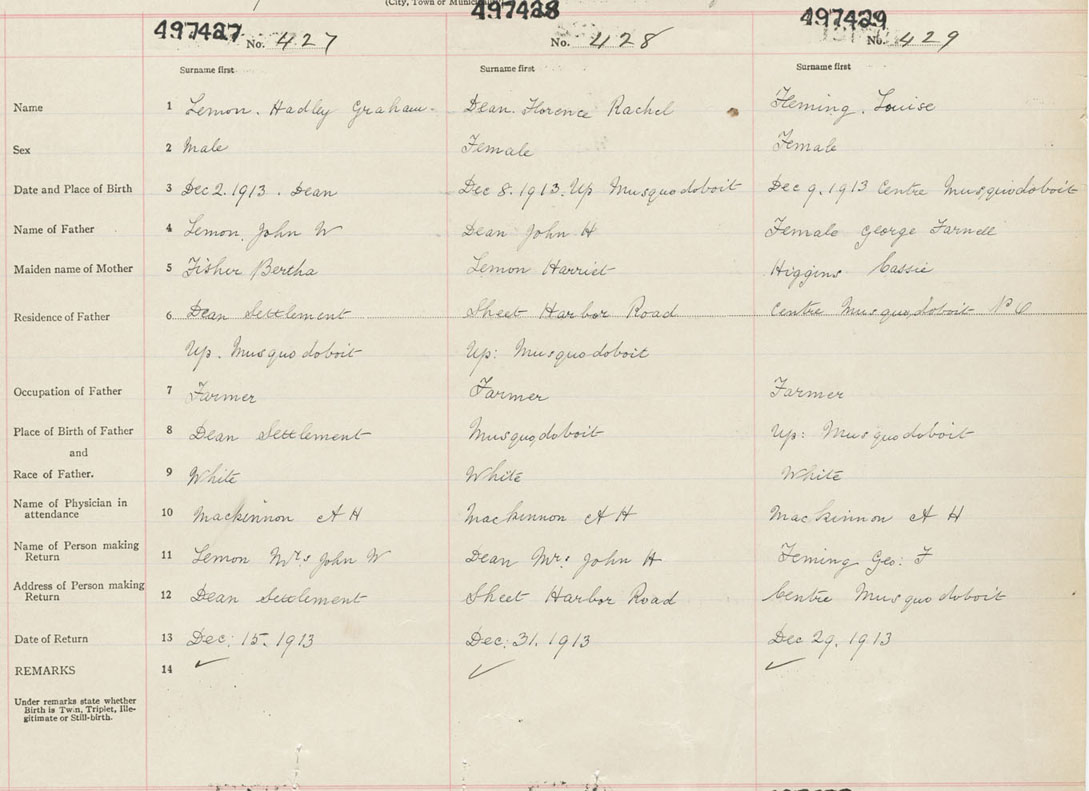 (City, Town or Munici
497427 No. 427
497428 No. 428
497429 No. 429
Surname first Surname first Surname first
Name 1 Lemon. Hadley Graham. Dean. Florence Rachel Fleming. Louise
Sex 2 Male Female Female
Date and Place of Birth 3 Dec 2. 1913. Dean Dec 8. 1913. Up Musquodoboit Dec 9, 1913 Centre Musquodoboit
Name of Father 4 Lemon John W Dean John H Female George Farnell
Maiden name of Mother 5 Fisher Bertha Lemon Harriet Higgins Cassie
Residence of Father 6 Dean Settlement Sheet Harbor Road Centre Musquodoboit P O
Up. Musquodoboit Up: Musquodoboit
Occupation of Father 7 Farmer Farmer Farmer
Place of Birth of Father 8 Dean Settlement Musquodoboit Up: Musquodoboit
and
Race of Father. 9 White White White
Name of Physician in
attendance 10 Mackinnon A H Mackinnon A H Mackinnon A H
Name of Person making
Return 11 Lemon Mrs John W Dean Mrs John H Feming Geo: F
Address of Person making
Return 12 Dean Settlement Sheet Harbor Road Centre Musquodoboit
Date of Return 13 Dec. 15. 1913 Dec. 31. 1913 Dec 29. 1913
REMARKS 14 ✓ ✓ ✓
Under remarks state whether
Birth is Twin, Triplet, Ille-
gitimate or Still-birth.